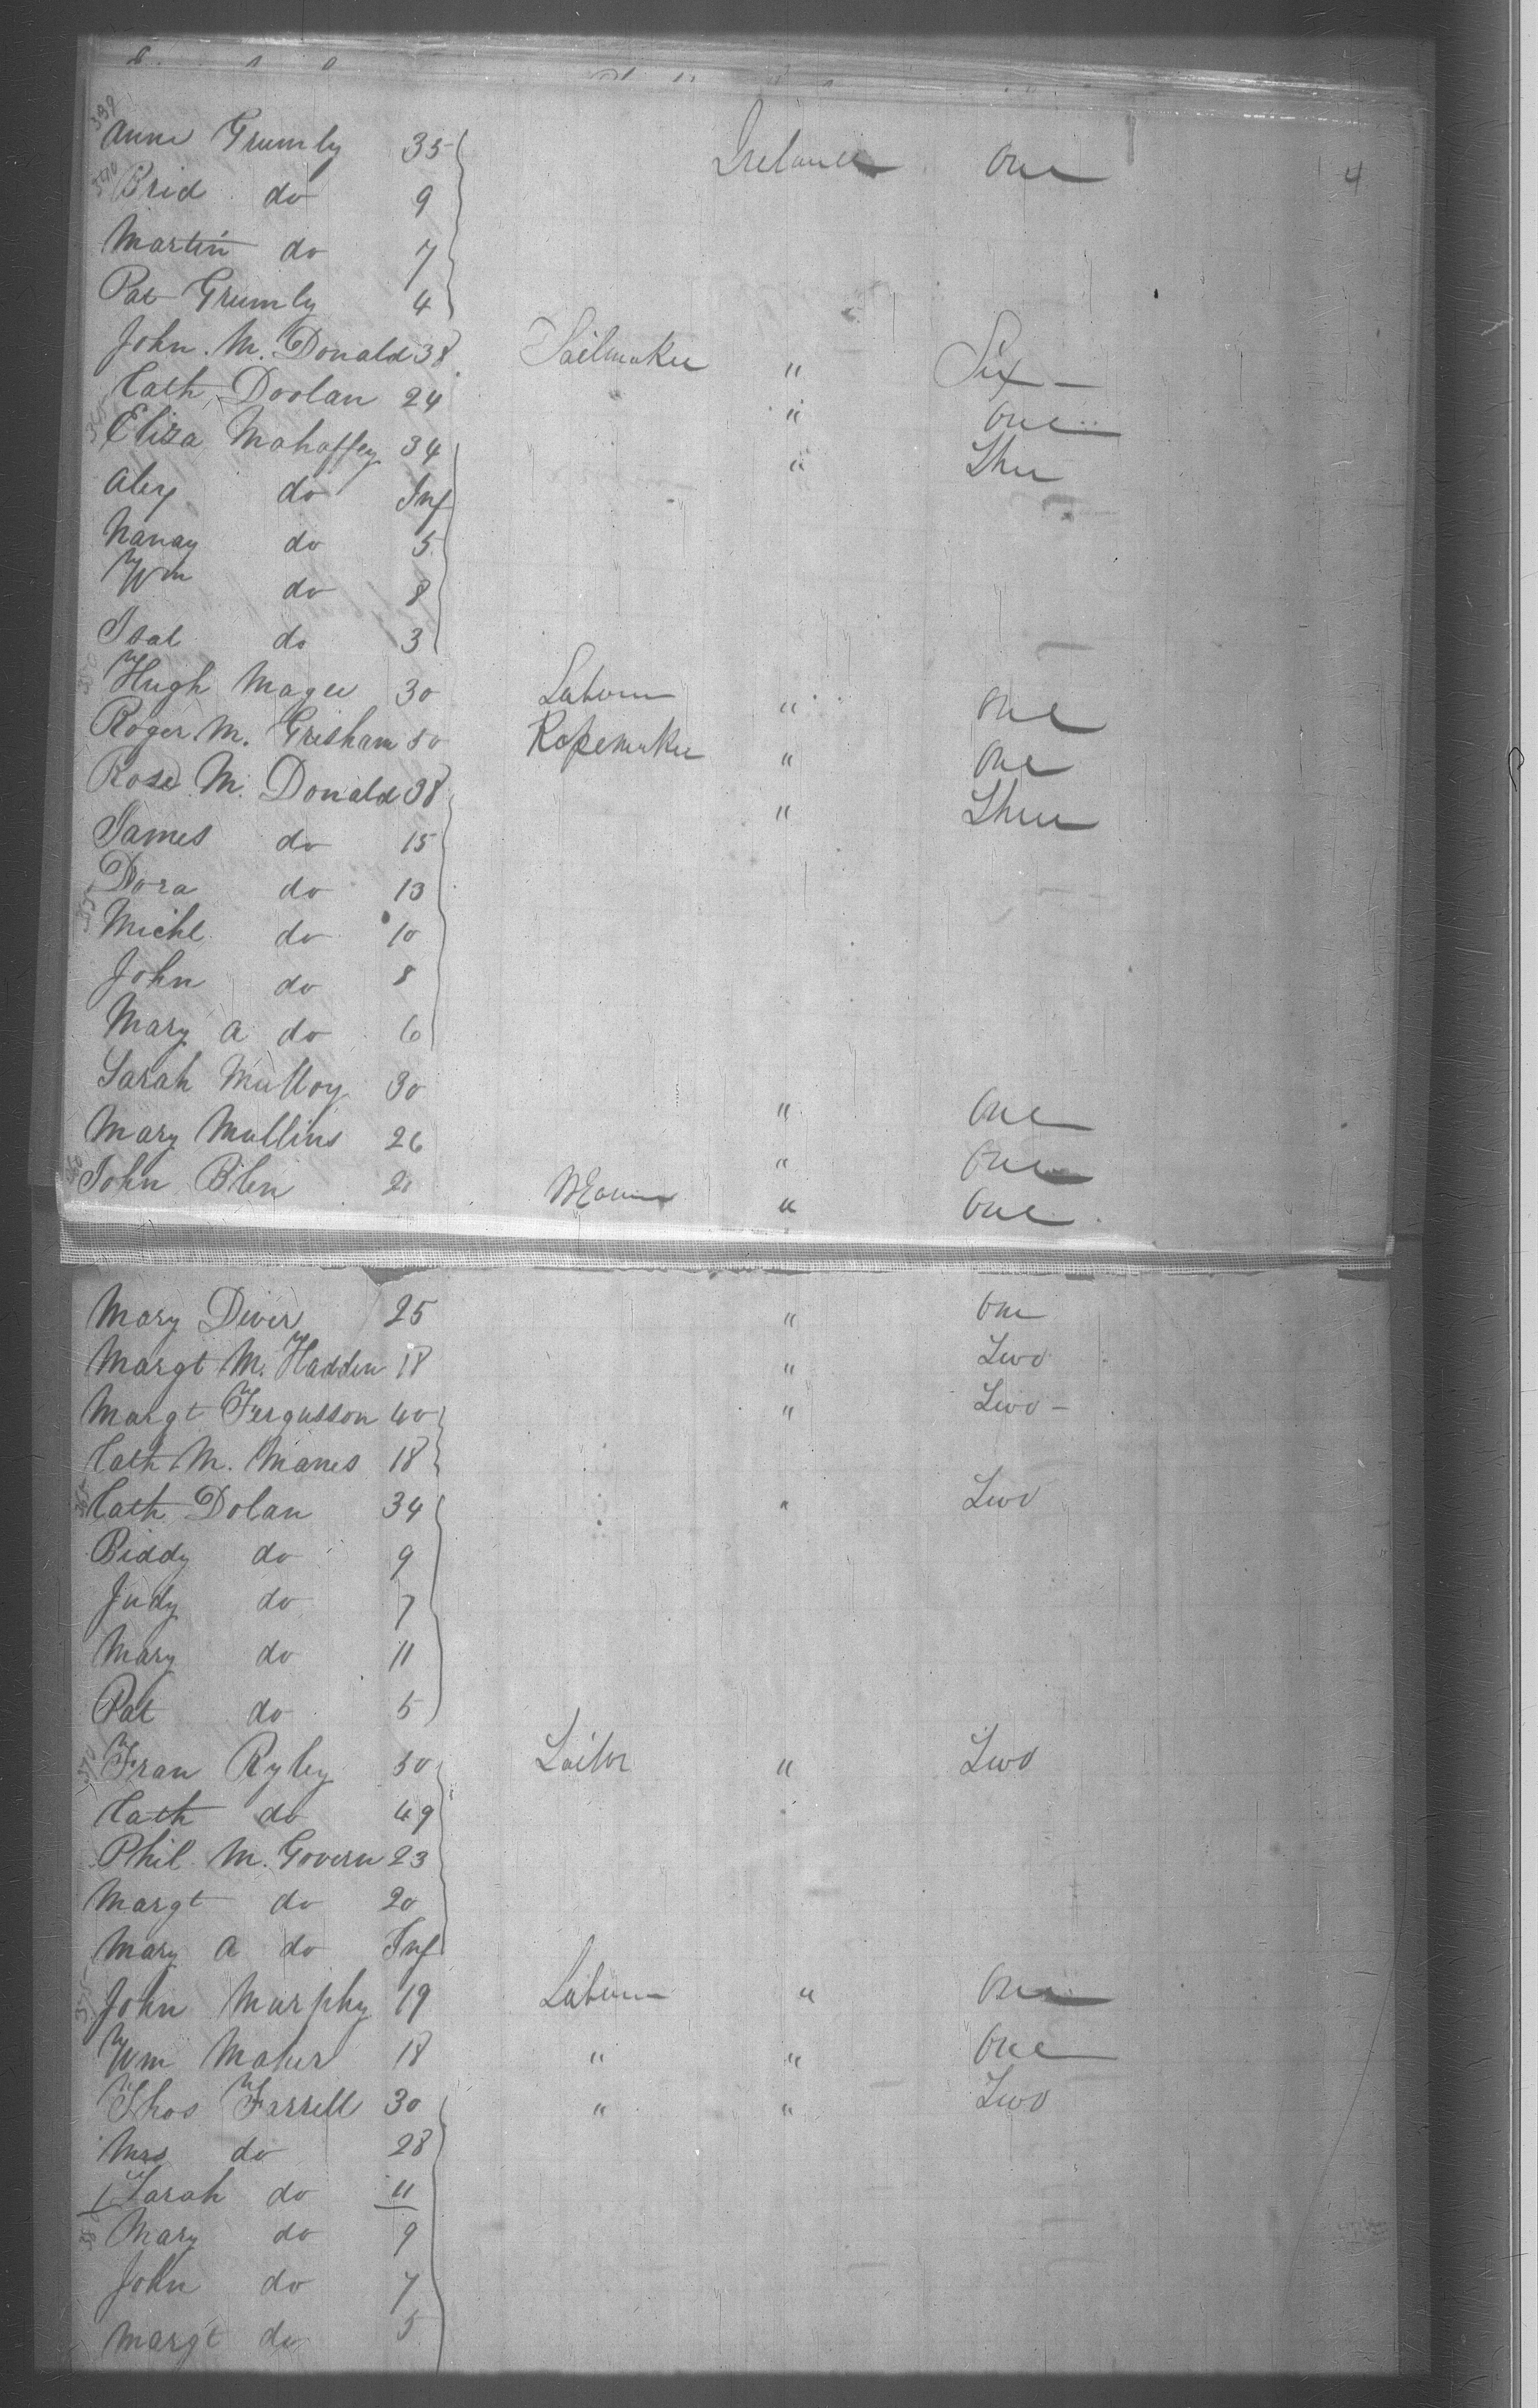 339 Anne Grumly 35 Ireland One 4
340 Brid do 9
Martin do 7
Pat Grumly 4
John M. Donald 38 Sailmaker " Six
Cath Doolan 24 " One
345 Eliza Mahaffey 34 " Three
Alex do Inf
Nanay do 5
Wm do 8
Isal do 3
350 Hugh Magee 30 Labourer " One
Roger M. Grisham 50 Ropemaker " One
Rose M. Donald 38 " Three
James do 15
Dora do 13
355 Michl do 10
John do 8
Mary A do 6
Sarah Mulloy 30 " One
Mary Mullins 26 " One
360 John 21 " One
Mary Diver 25 " One
Margt M. Hadden 18 " Two
Margt Fergusson 40 " Two
Cath M. Manes 18
365 Cath Dolan 34 " Two
Biddy do 9
Judy do 7
Mary do 11
Pat do 5
370 Fran Ryley 50 Tailor " Two
Cath do 49
Phil M. Govern 23
Margt do 20
Mary A do Inf
375 John Murphy 19 Labourer " One
Wm Maher 18 " " One
Thos Farrell 30 " " Two
Mrs do 28
1 Sarah do 11
380 Mary do 9
John do 7
Margt do 5